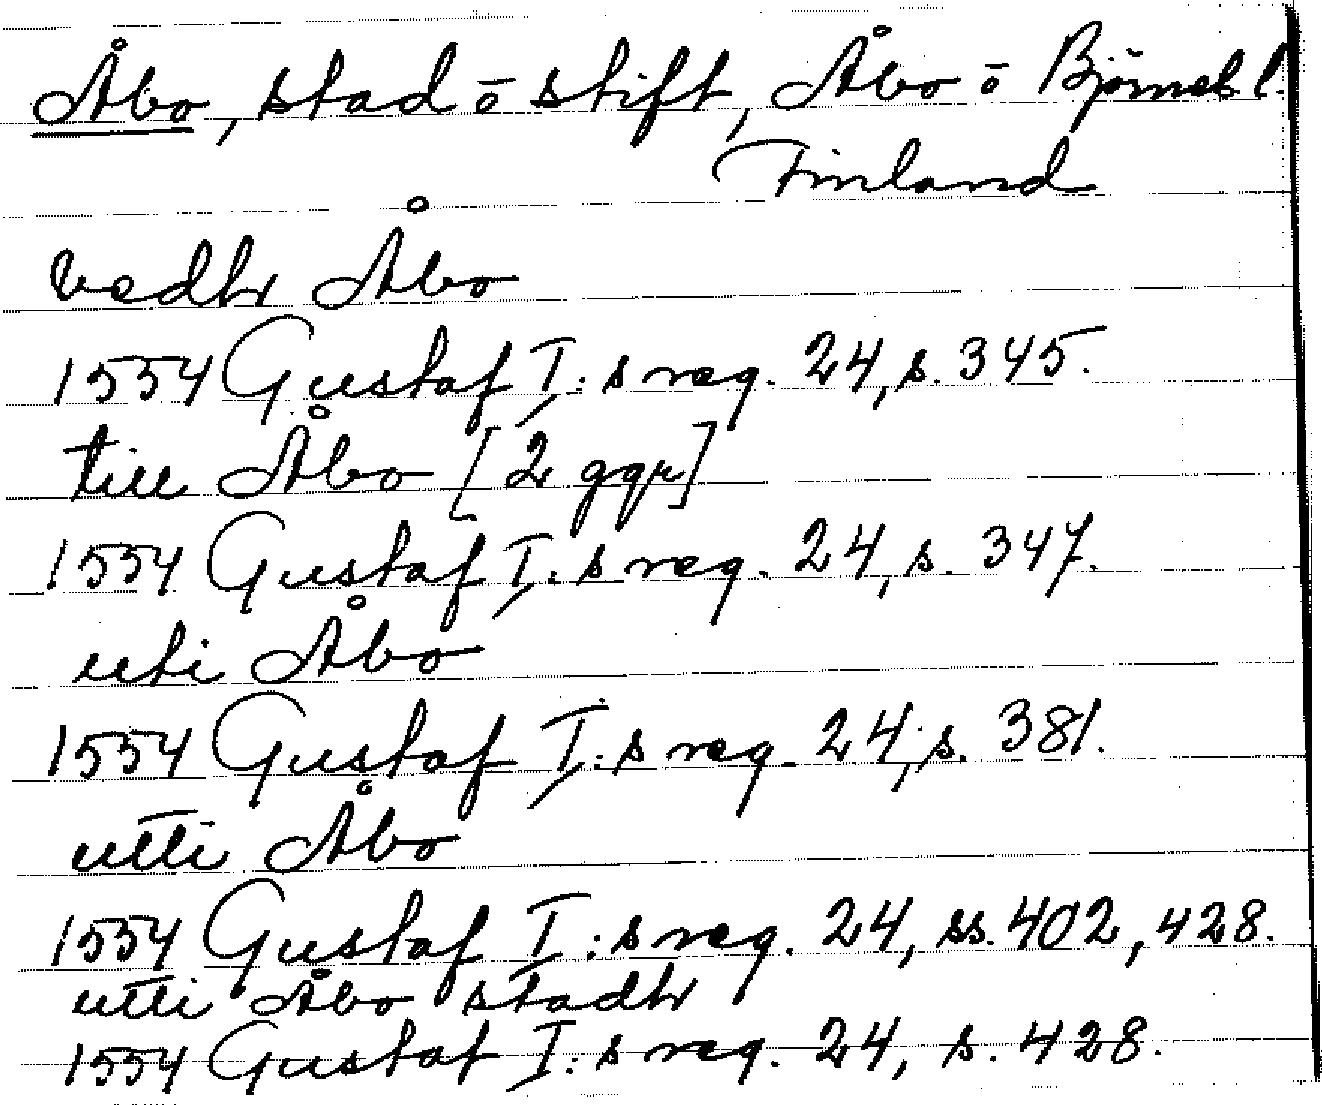 Åbo, stad ō stift, Åbo ō Björneb l.
Finland
vedh Åbo
1554 Gustaf I:s reg. 24, s. 345.
till Åbo [2 ggr]
1554 Gustaf I:s reg. 24, s. 347.
uti Åbo
1554 Gustaf I:s reg. 24, s. 381.
utti Åbo
1554 Gustaf I:s reg. 24, ss. 402, 428.
utti Åbo stadh
1554 Gustaf I:s reg. 24, s. 428.